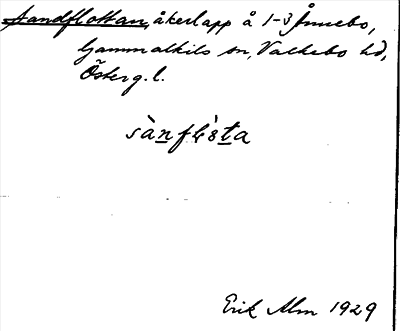 Sandflottan, åkerlapp å 1-3 Ånnebo,
Gammalkils sn, Valkebo hd,
Österg. l.
Erik Alm 1929